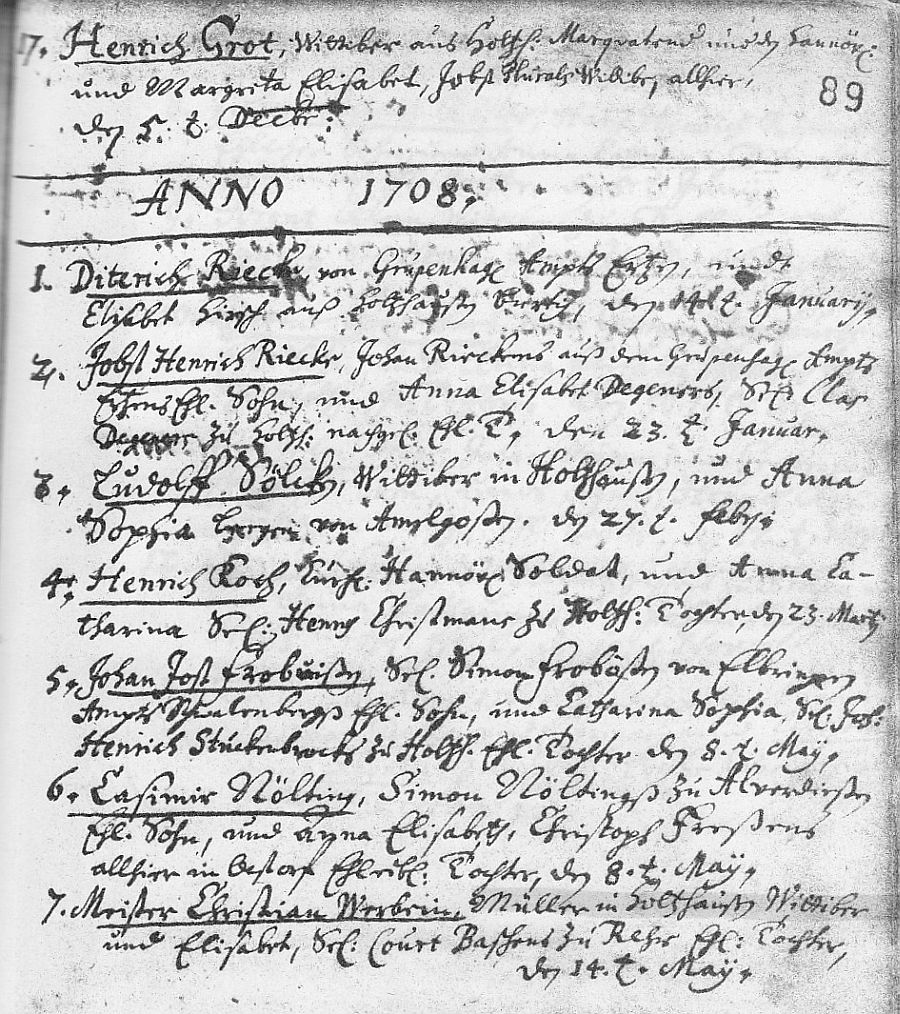 17. Henrich Grot, Wittiber aus Holtzh: und
und Margreta Elisabet, Jobst Wittibe, allhier,
89
den 5. t. Decbr:
ANNO 1708.
1. Diterich Riecke, von Grupenhag Ampts Ertzen, undt
Elisabet Hirsch auß Holtzhausen den t. January.
2. Jobst Henrich Riecke, Johan Rieckens auß dem Grupenhag Ampts
Ertzens Ehl. Sohn, und Anna Elisabet Degeners, Sel: Clas
Degener zu Holtzh: nachgel: Ehl. T. den 23. t. Januar.
3. Ludolff Sölck, Wittiber in Holtzhausen, und Anna
Sophia von Amelgossen. den 27. t. Febr.
4. Henrich Koch, Churf: Hannöv: Soldat, und Anna Ca-
tharina Sel: Henrich Christmans zu Holtzh: Tochter, den 23. Martij
5. Johan Jost Frobösen, Sel. Simon Frobösen von Elbringen
Ampts Schwalenbergs Ehl. Sohn, und Catharina Sophia, Sel. Joh:
Henrich Stuckenbrocks zu Holtzh. Ehl. Tochter den 8. t. May.
6. Casimir Nölting, Simon Nöltings zu Alverdissen
Ehl. Sohn, und Anna Elisabeth, Christoph Fressens
allhier in Ostorf Ehleibl: Tochter, den 8. t. May.
7. Meister Christian Werbein, Müller in Holtzhausen Wittiber
und Elisabet, Sel: Court Baschens zu Rehr Ehl: Tochter,
den 14. t. May.